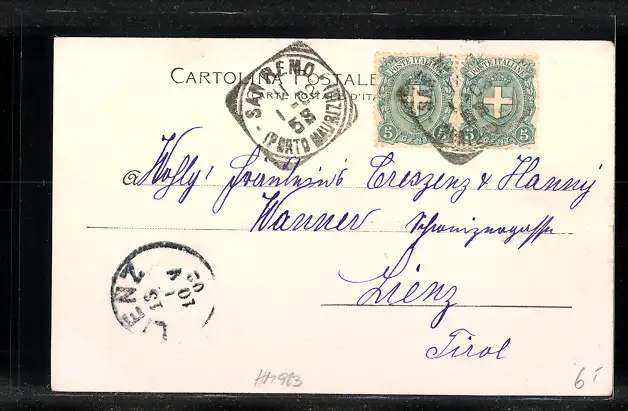 CARTOLINA POSTALE
CARTE POSTALE D'ITA
SAN REMO
(PORTO MAURIZIO)
POSTE ITALIANE
POSTE ITALIANE
5 CENT. 5
5 CENT. 5
Wohlg: Fräuleins Creszenz & Hanny
Wanner Schweizergasse
Lienz
Tirol
LIENZ
HH983
6